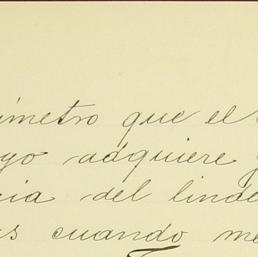 ímetro que el
yo adquiere y
cia del linde
as cuando me